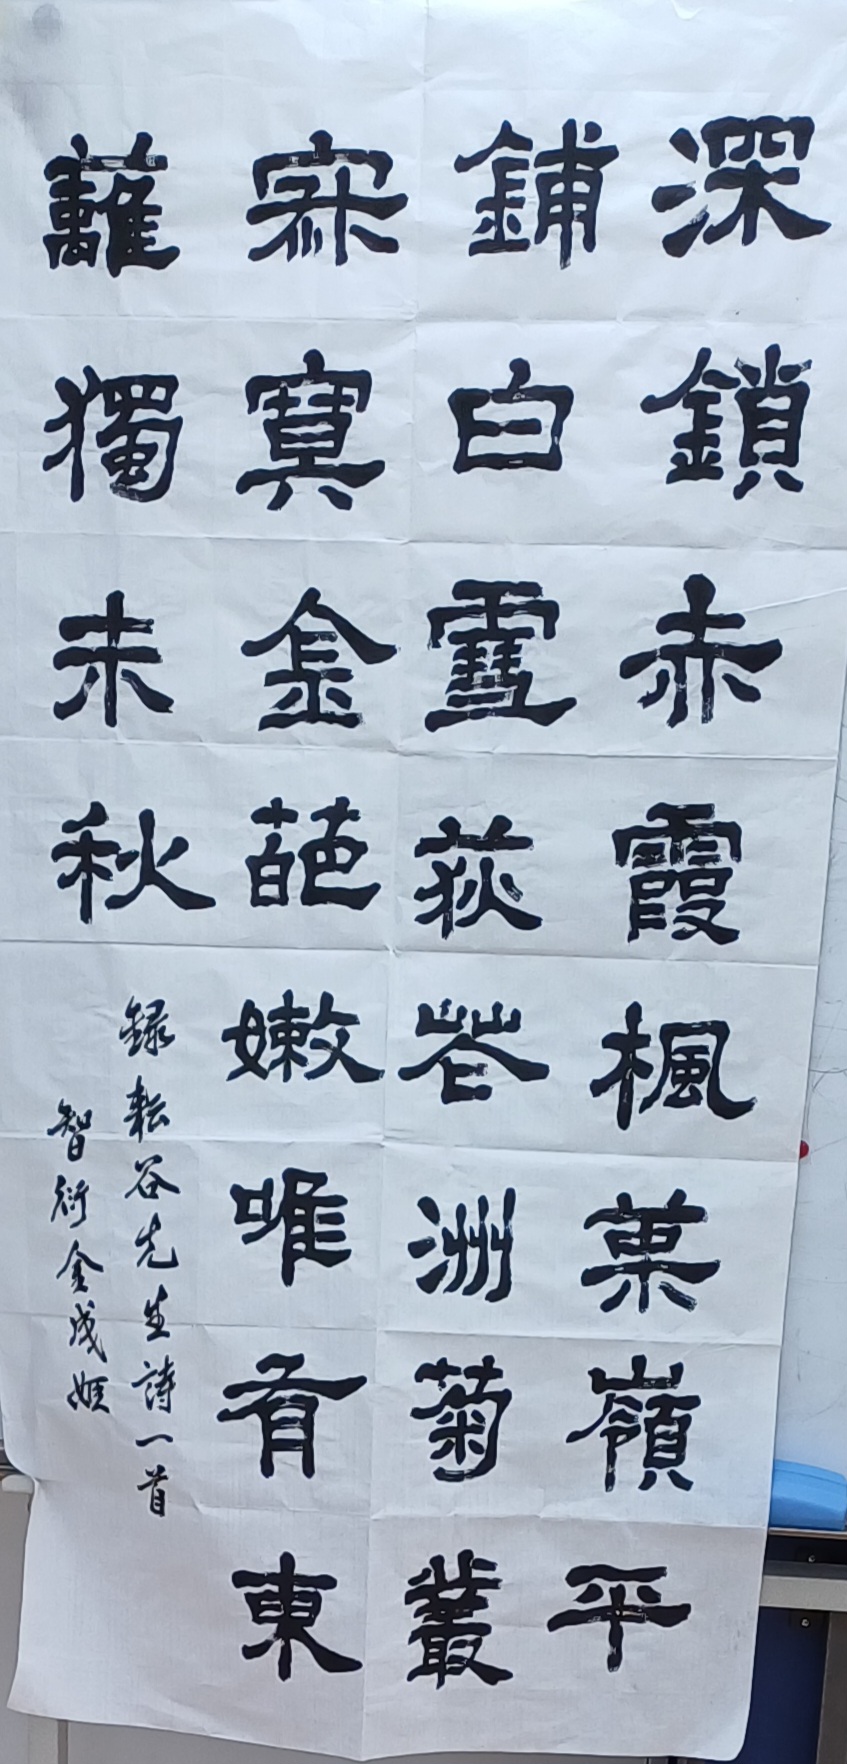 深鎖赤霞楓葉嶺平
鋪白雪荻花洲菊叢
寂寞金葩嫩唯有東
蘺獨未秋
録耘谷先生詩一首
智衍金成姬